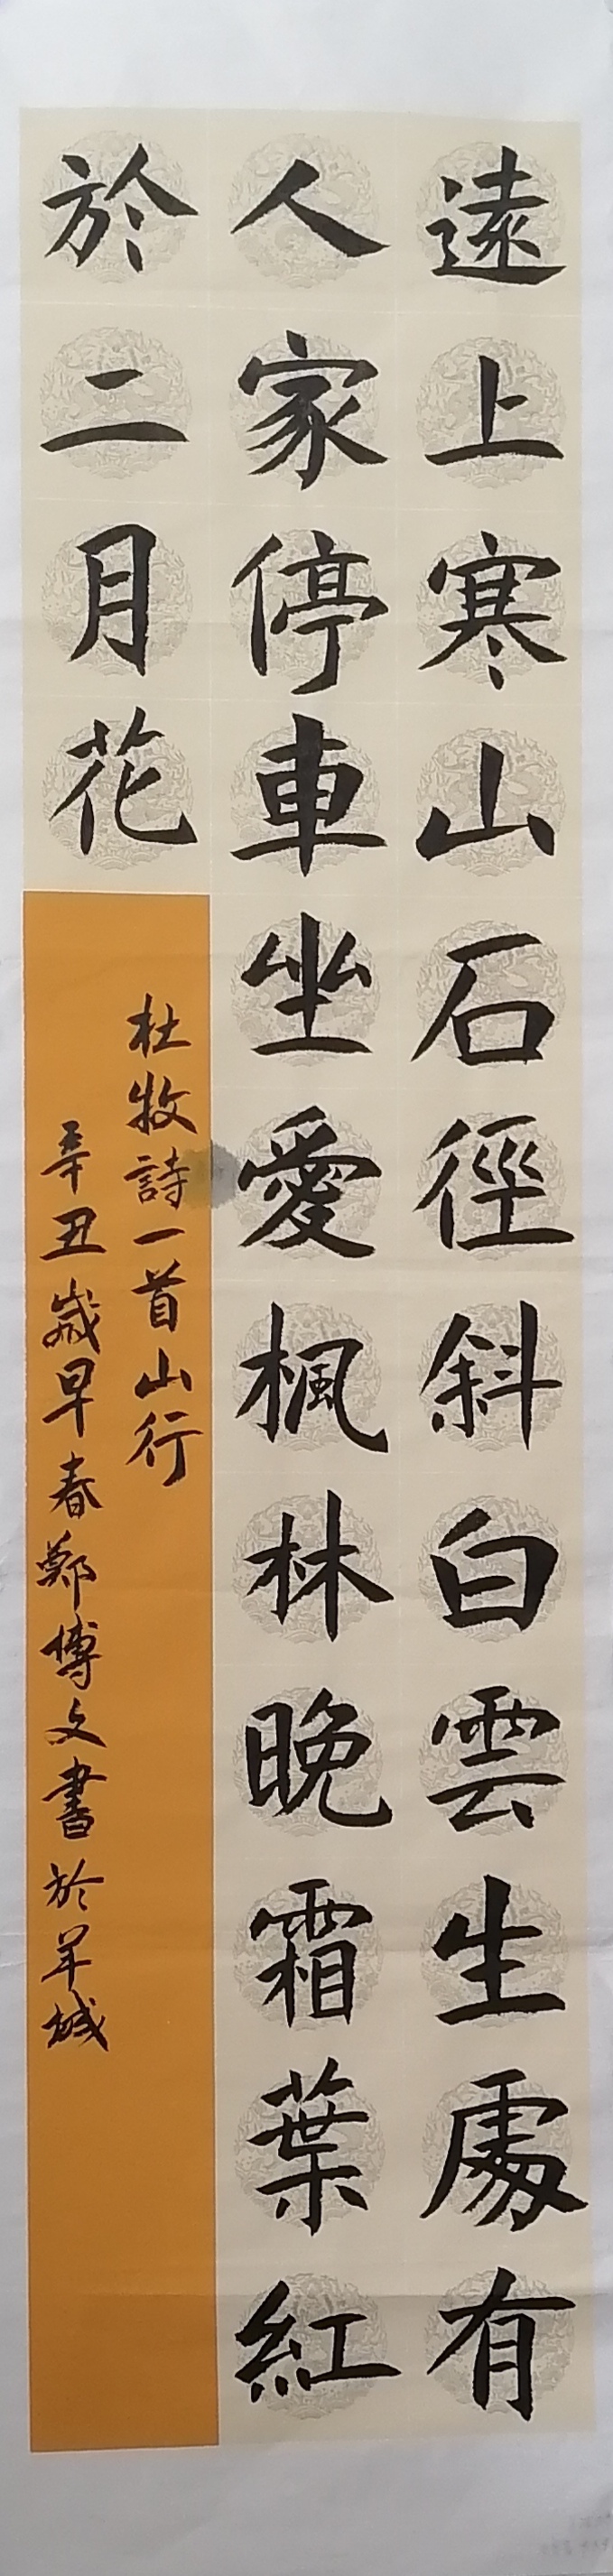 遠上寒山石徑斜白雲生處有
人家停車坐愛楓林晚霜葉紅
於二月花
杜牧詩一首山行
辛丑歲早春鄭博文書於羊城